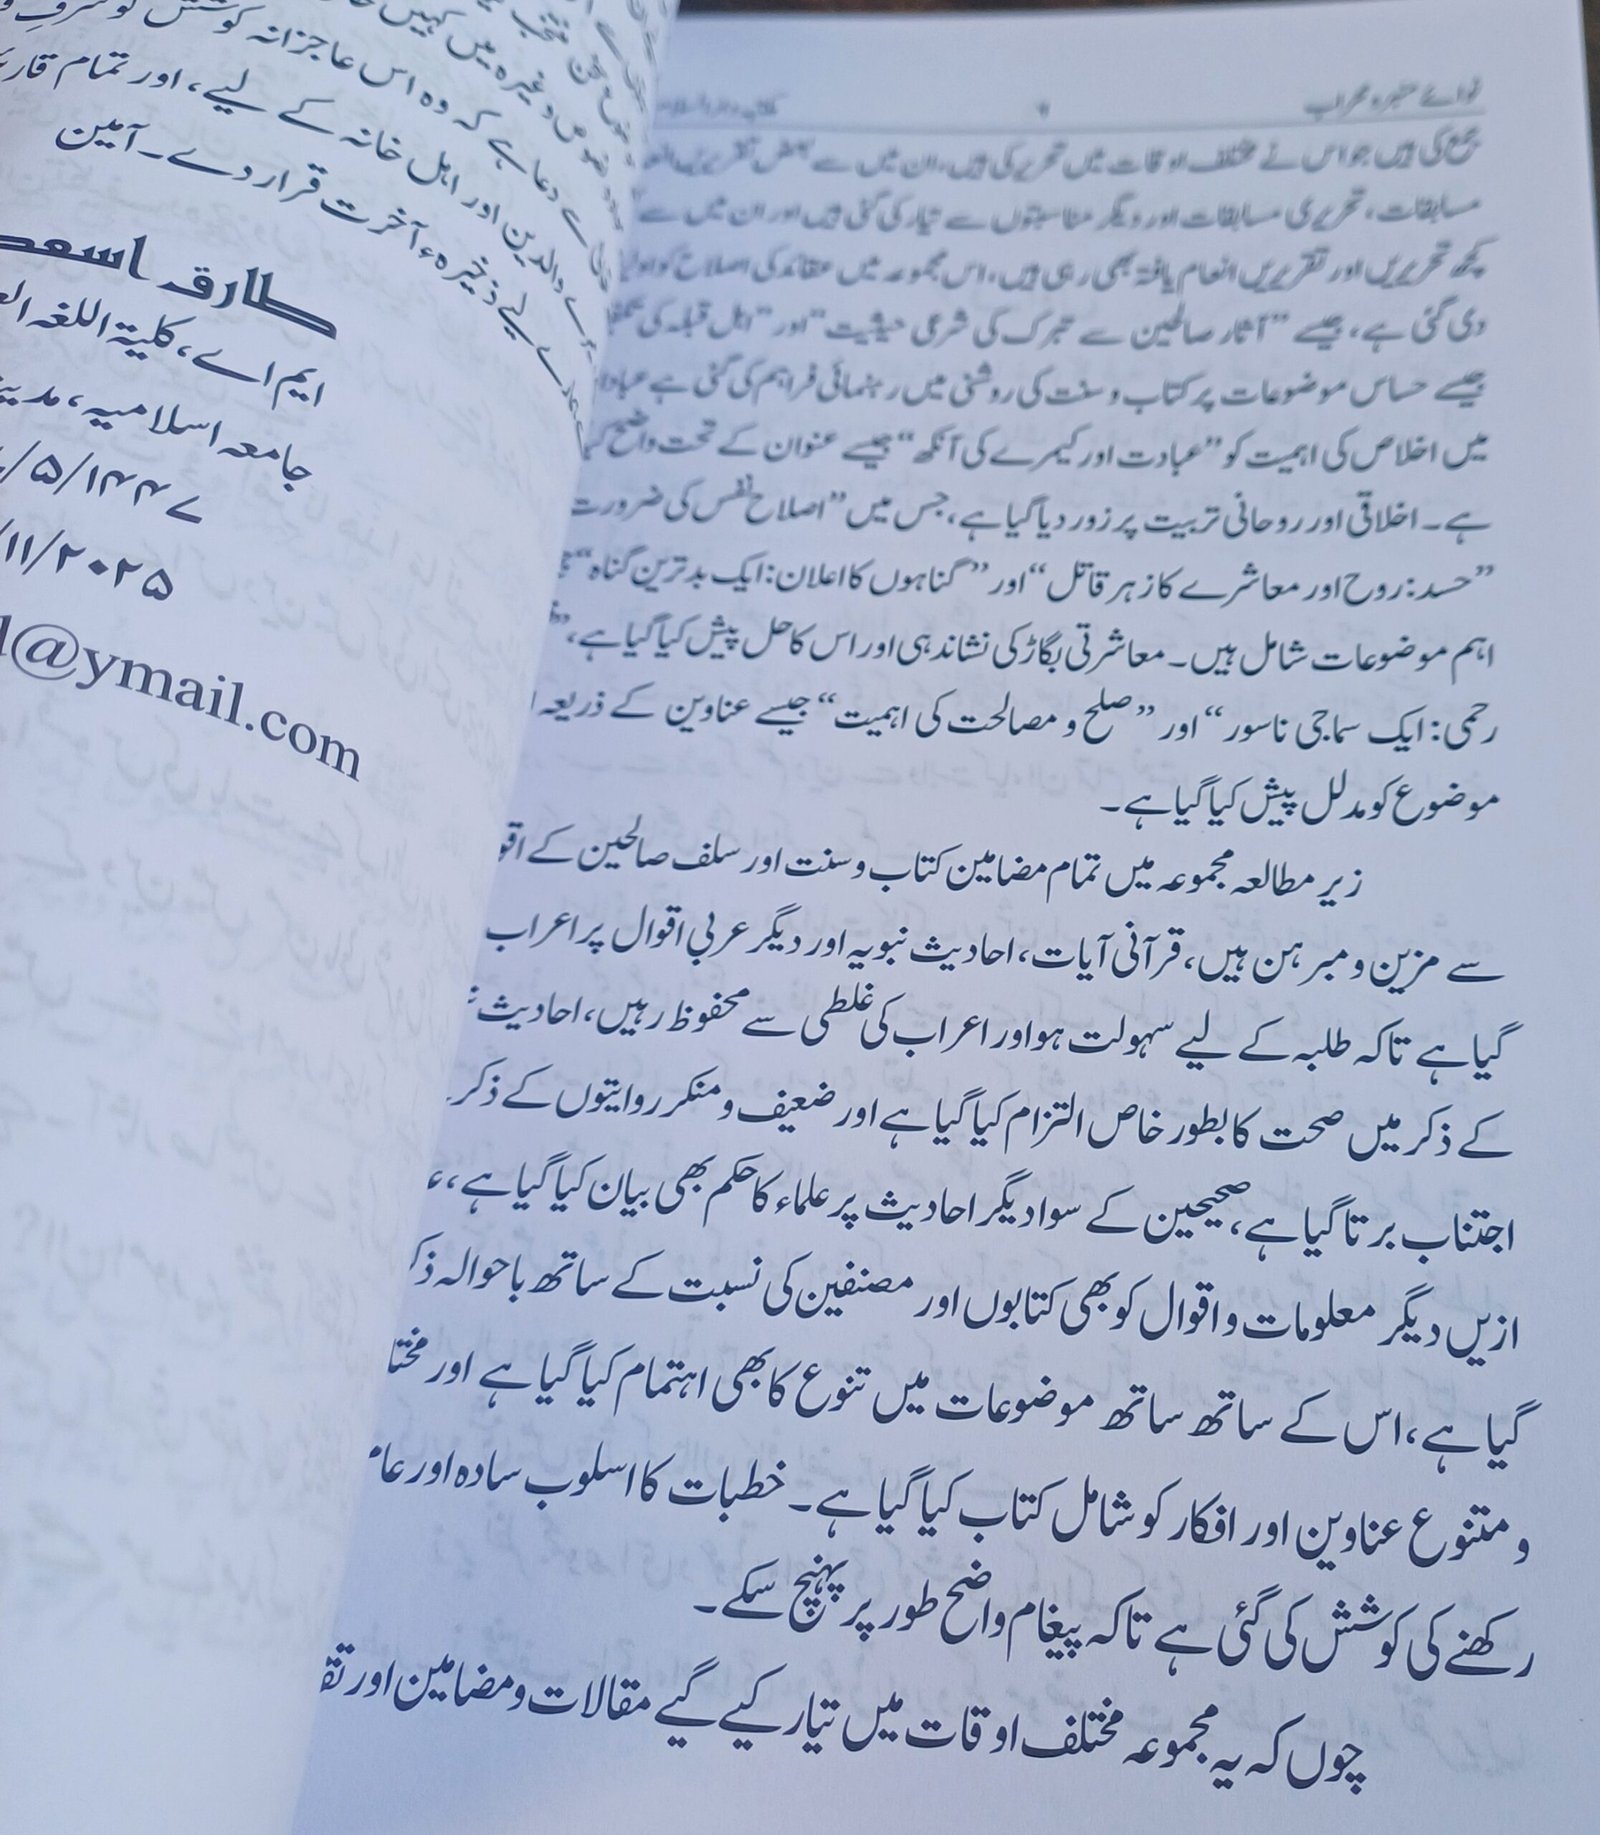 نوائے منبر و محراب
۹
جمع کی ہیں جو اس نے مختلف اوقات میں تحریر کی ہیں، ان میں سے بعض تقریریں
مسابقات، تحریری مسابقات اور دیگر مناسبتوں سے تیار کی گئی ہیں اور ان میں سے
کچھ تحریریں اور تقریریں انعام یافتہ بھی رہی ہیں، اس مجموعہ میں عقائد کی اصلاح کو
دی گئی ہے، جیسے ”آثار صالحین سے تبرک کی شرعی حیثیت“ اور ”اہل قبلہ کی
جیسے حساس موضوعات پر کتاب و سنت کی روشنی میں رہنمائی فراہم کی گئی ہے
میں اخلاص کی اہمیت کو ”عبادت اور کیمرے کی آنکھ“ جیسے عنوان کے تحت واضح
ہے۔ اخلاقی اور روحانی تربیت پر زور دیا گیا ہے، جس میں ”اصلاح نفس کی ضرورت
”حسد: روح اور معاشرے کا زہر قاتل“ اور ”گناہوں کا اعلان: ایک بدترین گناہ“
اہم موضوعات شامل ہیں۔ معاشرتی بگاڑ کی نشاندہی اور اس کا حل پیش کیا گیا ہے،
رحمی: ایک سماجی ناسور“ اور ”صلح و مصالحت کی اہمیت“ جیسے عناوین کے ذریعہ
موضوع کو مدلل پیش کیا گیا ہے۔
زیر مطالعہ مجموعہ میں تمام مضامین کتاب و سنت اور سلف صالحین کے
سے مزین و مبرہن ہیں، قرآنی آیات، احادیث نبویہ اور دیگر عربی اقوال پر اعراب
گیا ہے تاکہ طلبہ کے لیے سہولت ہو اور اعراب کی غلطی سے محفوظ رہیں، احادیث
کے ذکر میں صحت کا بطور خاص التزام کیا گیا ہے اور ضعیف و منکر روایتوں کے ذکر
اجتناب برتا گیا ہے، صحیحین کے سوا دیگر احادیث پر علماء کا حکم بھی بیان کیا گیا ہے،
ازیں دیگر معلومات و اقوال کو بھی کتابوں اور مصنفین کی نسبت کے ساتھ باحوالہ
گیا ہے، اس کے ساتھ ساتھ موضوعات میں تنوع کا بھی اہتمام کیا گیا ہے اور
و متنوع عناوین اور افکار کو شامل کتاب کیا گیا ہے۔ خطبات کا اسلوب سادہ اور
رکھنے کی کوشش کی گئی ہے تاکہ پیغام واضح طور پر پہنچ سکے۔
چوں کہ یہ مجموعہ مختلف اوقات میں تیار کیے گیے مقالات و مضامین اور
وغیرہ میں کہیں
دعا ہے کہ وہ اس عاجزانہ کوشش کو شرف
والدین اور اہل خانہ کے لیے، اور تمام
لیے ذخیرہ آخرت قرار دے۔ آمین
طارق اسعد
ایم اے، کلیۃ اللغہ
جامعہ اسلامیہ،
/۵/۱۴۴۷
/۱۱/۲۰۲۵
@ymail.com